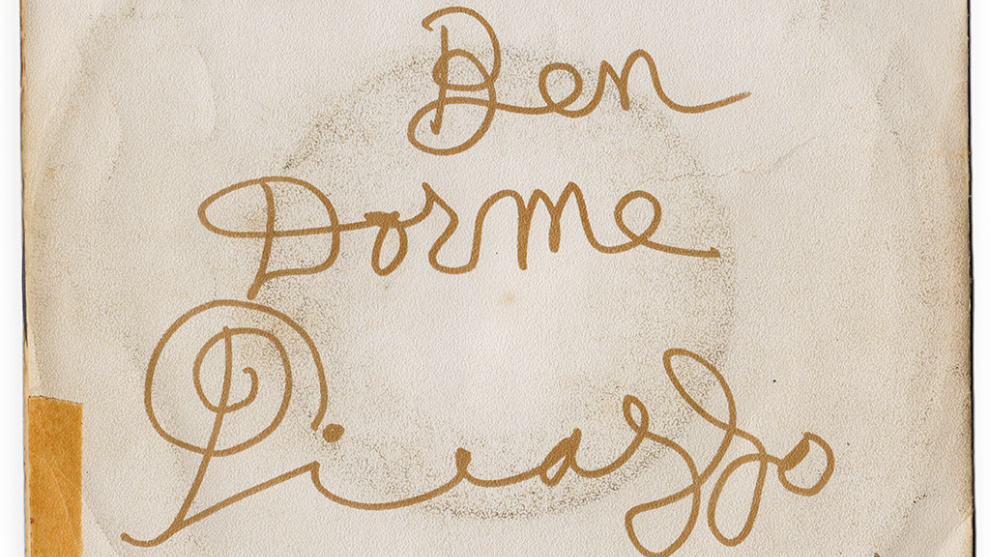 Ben
Dorme
Picazzo